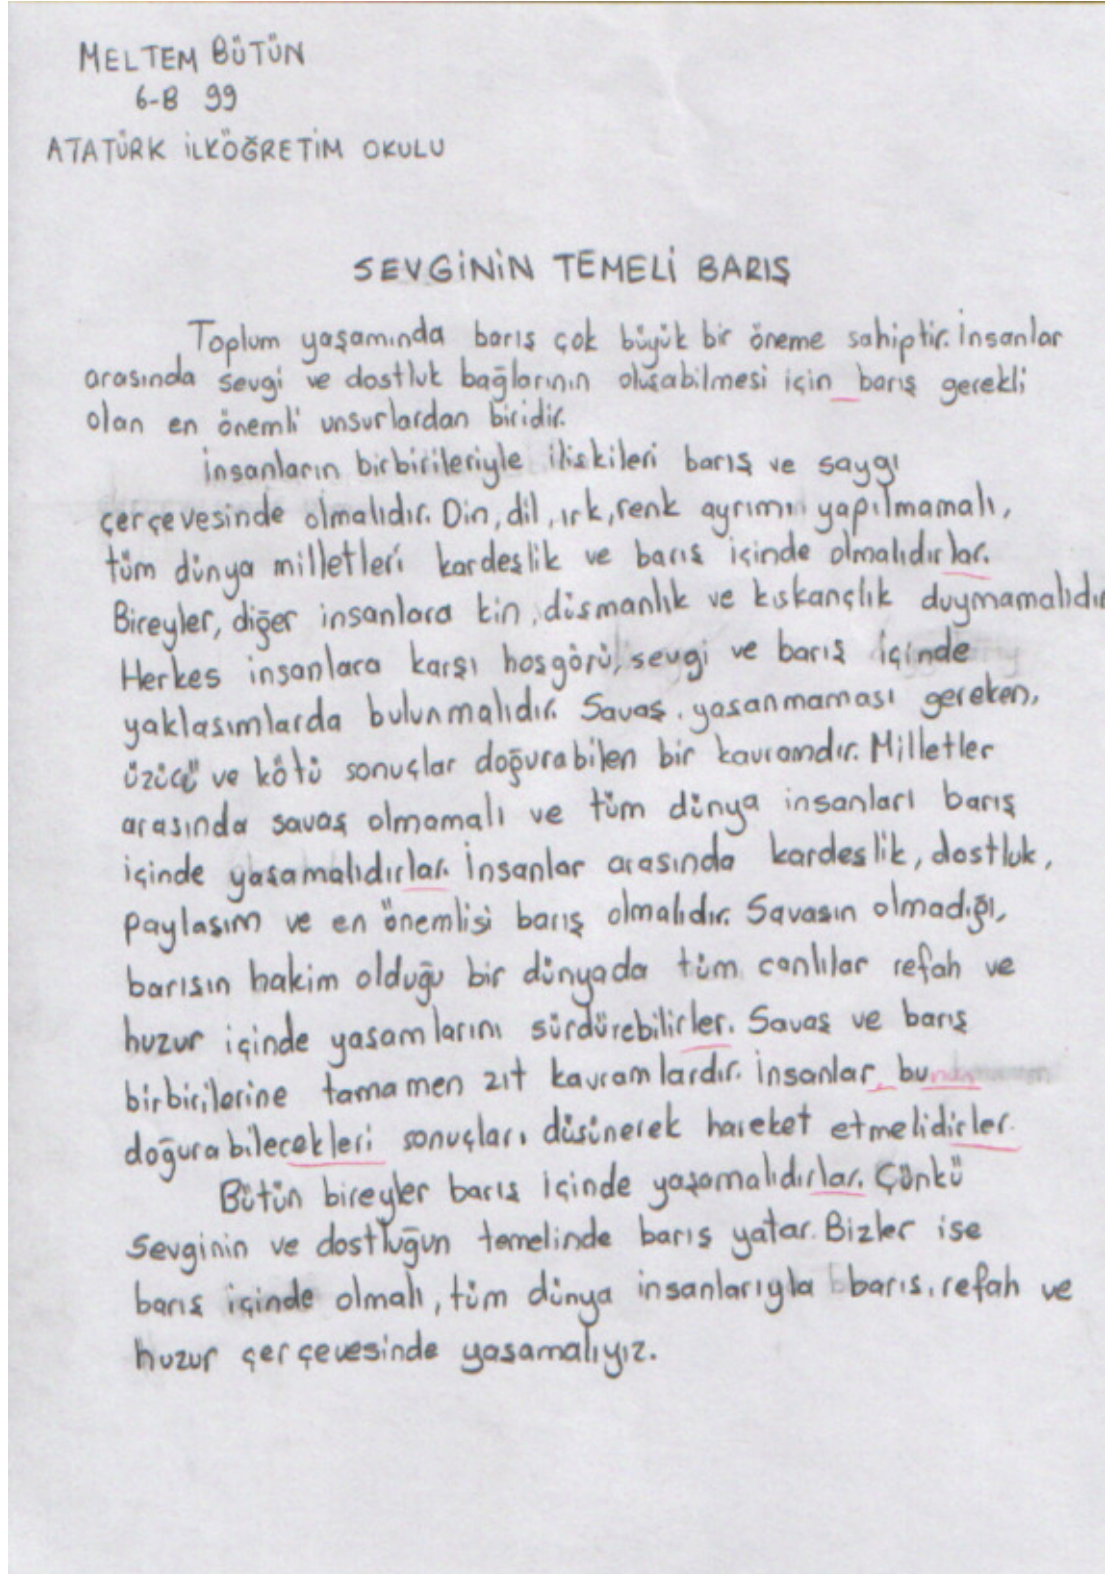 MELTEM BÜTÜN
6-B 99
ATATÜRK İLKÖĞRETİM OKULU
SEVGİNİN TEMELİ BARIŞ
Toplum yaşamında barış çok büyük bir öneme sahiptir. İnsanlar
arasında sevgi ve dostluk bağlarının oluşabilmesi için barış gerekli
olan en önemli unsurlardan biridir.
İnsanların birbirileriyle ilişkileri barış ve saygı
çerçevesinde olmalıdır. Din, dil, ırk, renk ayrımı yapılmamalı,
tüm dünya milletleri kardeşlik ve barış içinde olmalıdırlar.
Bireyler, diğer insanlara kin, düşmanlık ve kıskançlık duymamalıdır
Herkes insanlara karşı hoşgörü, sevgi ve barış içinde
yaklaşımlarda bulunmalıdır. Savaş, yaşanmaması gereken,
üzücü ve kötü sonuçlar doğurabilen bir kavramdır. Milletler
arasında savaş olmamalı ve tüm dünya insanları barış
içinde yaşamalıdırlar. İnsanlar arasında kardeşlik, dostluk,
paylaşım ve en önemlisi barış olmalıdır. Savaşın olmadığı,
barışın hakim olduğu bir dünyada tüm canlılar refah ve
huzur içinde yaşamlarını sürdürebilirler. Savaş ve barış
birbirilerine tamamen zıt kavramlardır. İnsanlar, bu
doğurabilecekleri sonuçları düşünerek hareket etmelidirler.
Bütün bireyler barış içinde yaşamalıdırlar. Çünkü
sevginin ve dostluğun temelinde barış yatar. Bizler ise
barış içinde olmalı, tüm dünya insanlarıyla barış, refah ve
huzur çerçevesinde yaşamalıyız.